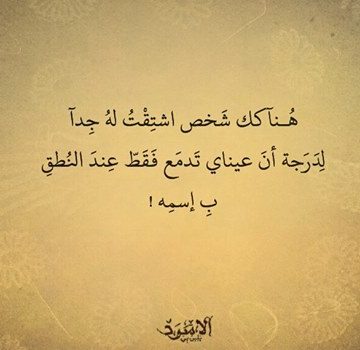 هُـنآكك شَخص اشتِقْتُ لهُ جِدآ
لِدَرَجة أنَ عيناي تَدمَع فَقَطّ عِندَ النُطقِ
بِ إسمِه !
الاسْوَدّ